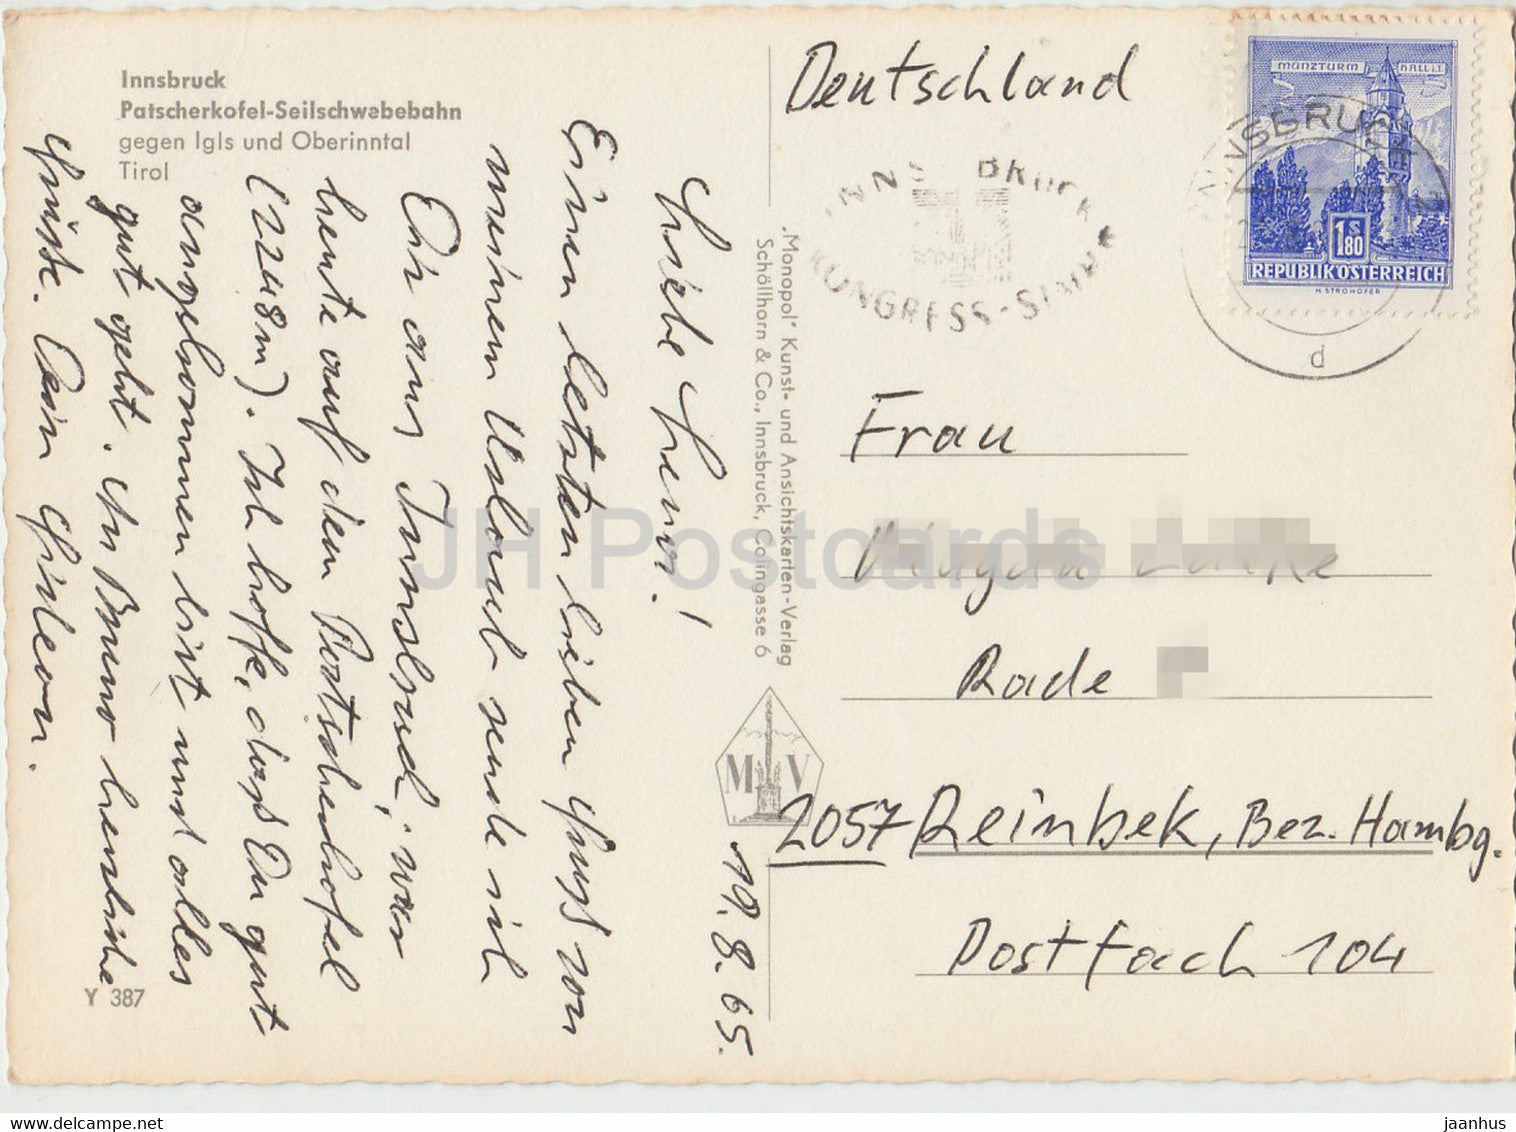 Innsbruck
Patscherkofel-Seilschwebebahn
gegen Igls und Oberinntal
Tirol
19.8.65.
Liebe
Einen letzten lieben Gruß von
meinem Urlaub sende ich
Dir aus Innsbruck, war
heute auf dem Patscherkofel
(2248m). Ich hoffe, dass Du gut
angekommen bist und alles
gut geht. An Bruno herzliche
Grüsse. Dein
Y 387
„Monopol" Kunst- und Ansichtskarten-Verlag
Schöllhorn & Co., Innsbruck, Colingasse 6
M V
Deutschland
INNSBRUCK
KONGRESS-
MÜNZTURM HALL i.T.
1 S 80
REPUBLIK ÖSTERREICH
H. STROHOFER
INNSBRUCK
d
Frau
Rade
2057 Reinbek, Bez. Hambg.
Postfach 104
JH Postcards
www.delcampe.net
jaanhus